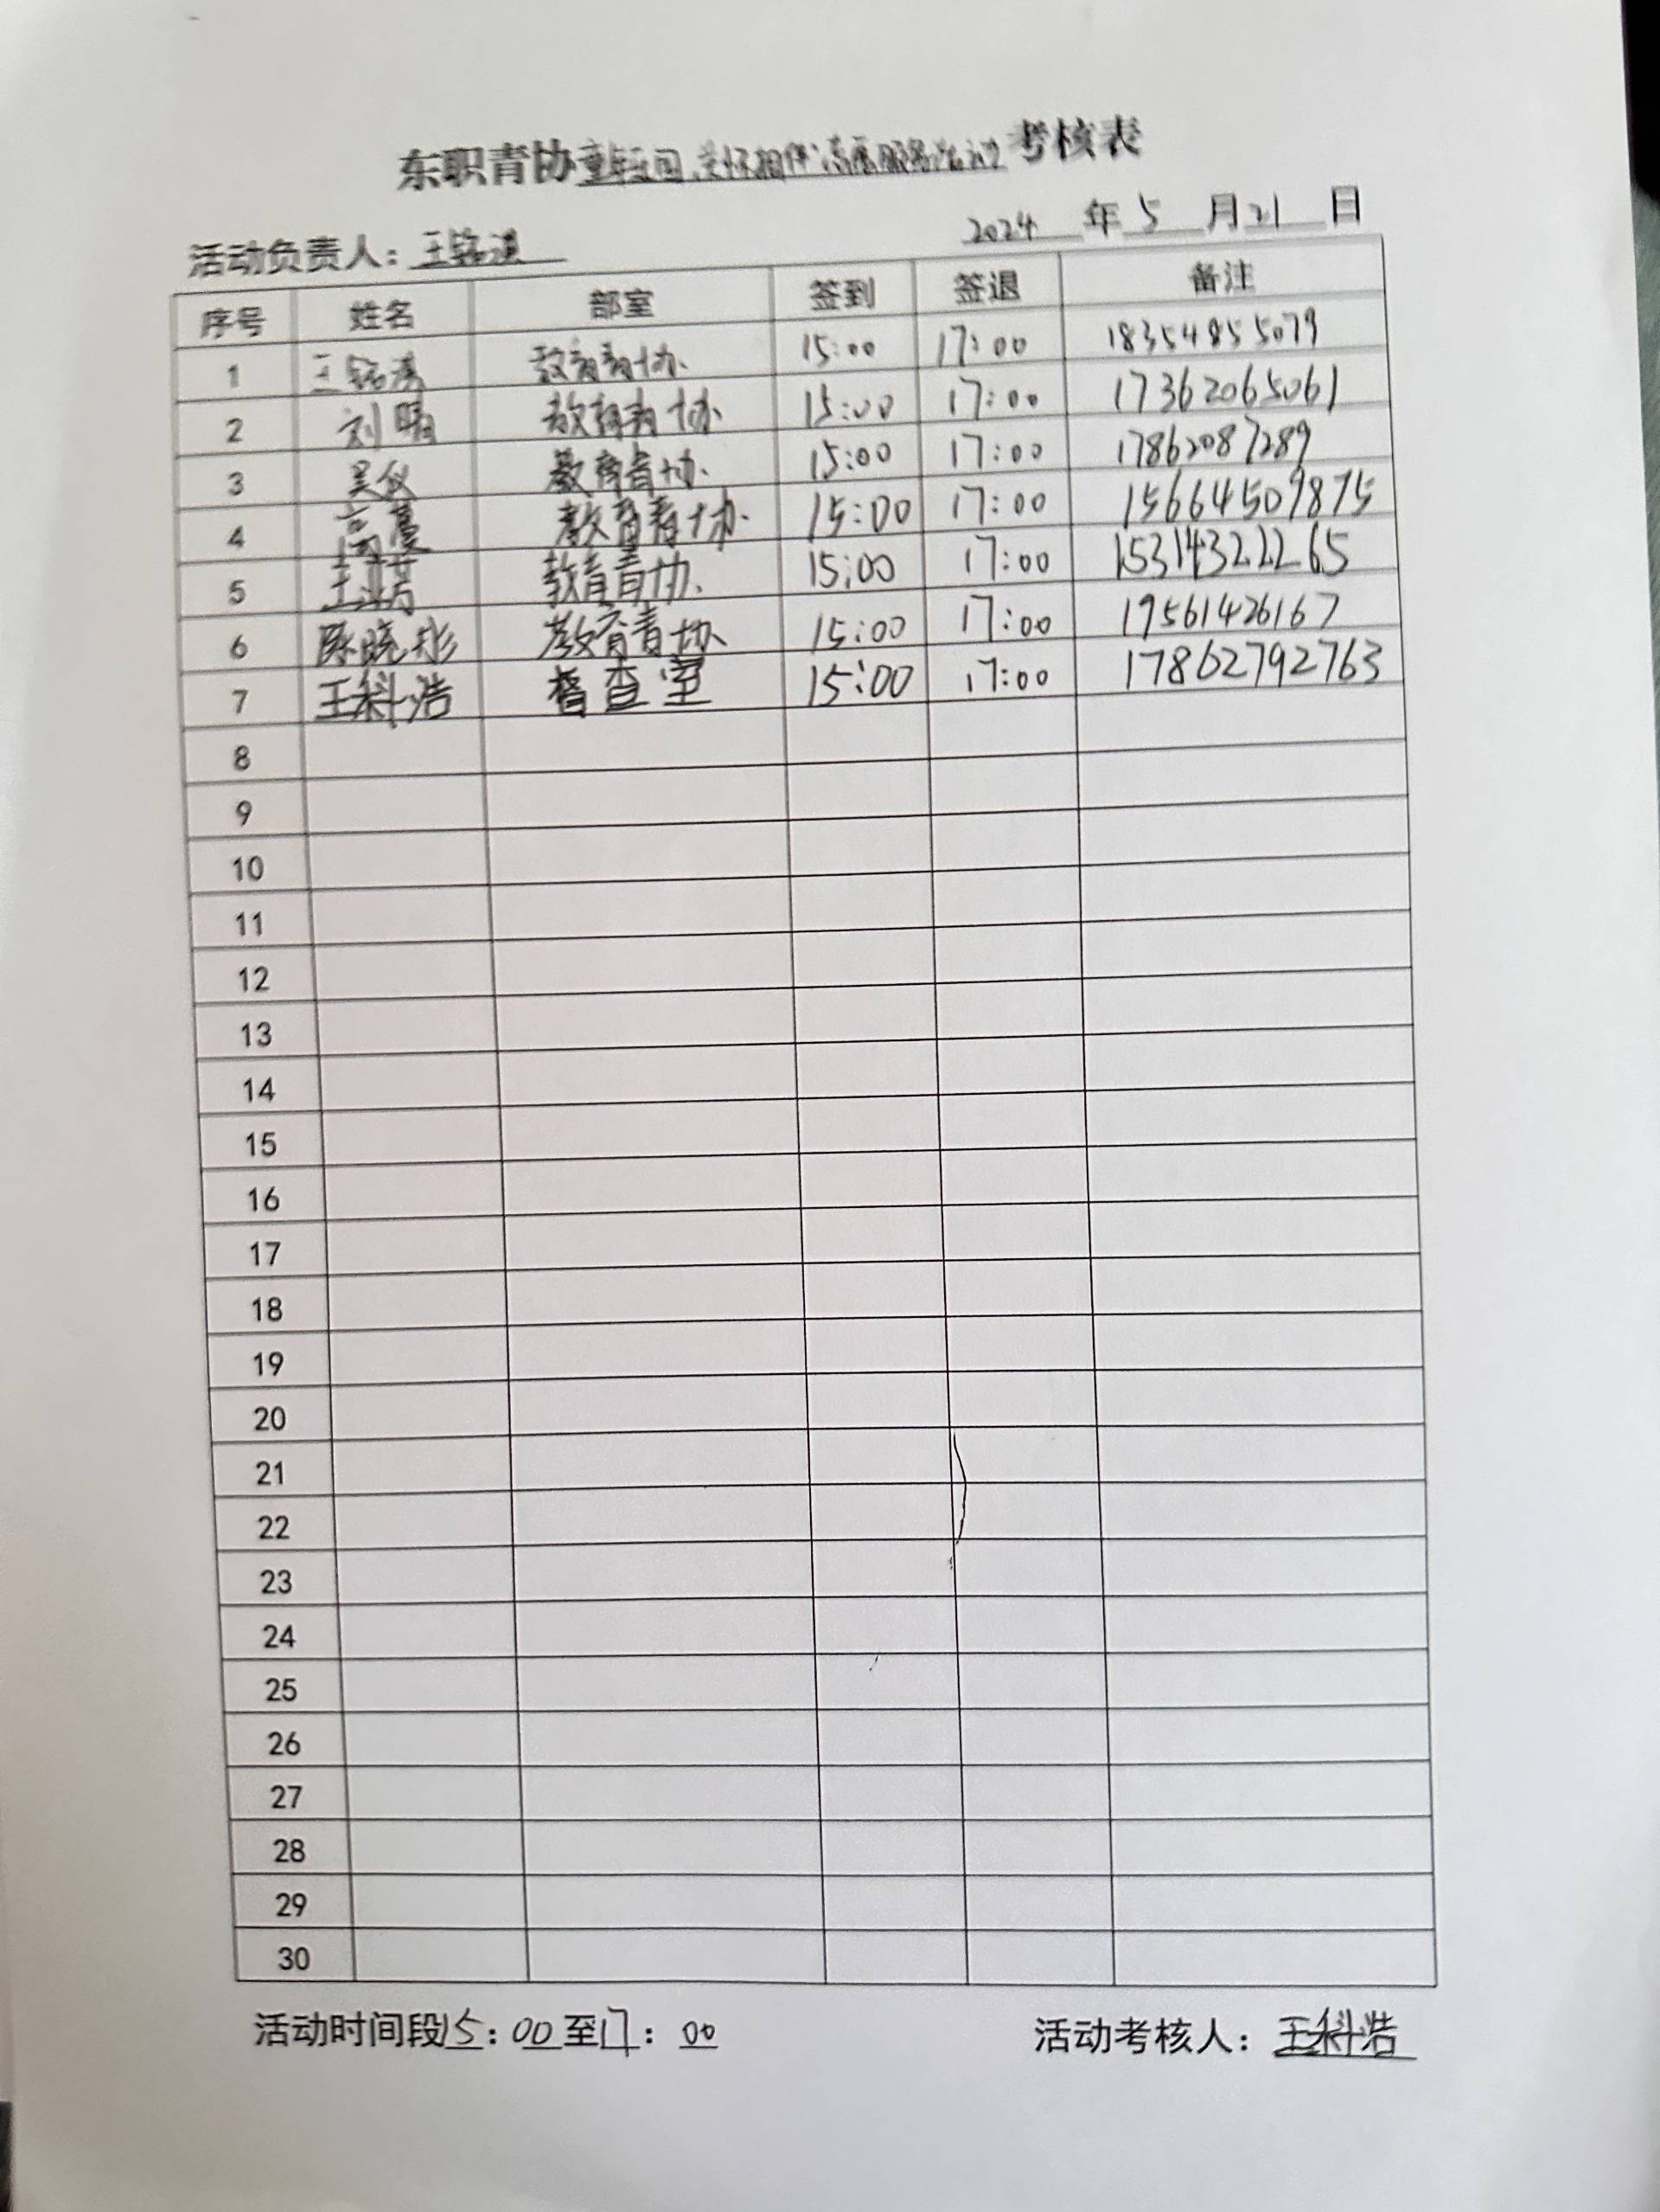 东职青协 考核表
活动负责人：王铭淇 2024 年 5 月 21 日
序号 姓名 部室 签到 签退 备注
1 王铭淇 教育青协 15:00 17:00 18354855079
2 刘晴 教育青协 15:00 17:00 17362065061
3 吴仪 教育青协 15:00 17:00 17862087289
4 教育青协 15:00 17:00 15664509875
5 教育青协 15:00 17:00 15314322265
6 陈晓彤 教育青协 15:00 17:00 19561426167
7 王科浩 督查室 15:00 17:00 17862792763
8
9
10
11
12
13
14
15
16
17
18
19
20
21
22
23
24
25
26
27
28
29
30
活动时间段15：00至17：00 活动考核人：王科浩